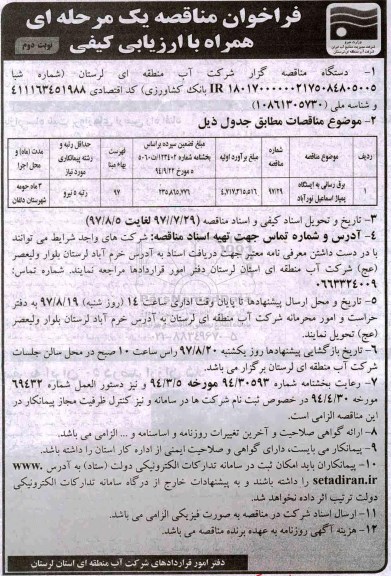 فراخوان مناقصه یک مرحله ای
همراه با ارزیابی کیفی
نوبت دوم
۱- دستگاه مناقصه گزار شرکت آب منطقه ای لرستان (شماره شبا
IR ۱۸۰۱۷۰۰۰۰۰۰۲۱۷۵۰۸۴۸۰۵۰۰۵ بانک کشاورزی) کد اقتصادی ۴۱۱۱۶۳۴۵۱۹۸۸
و شناسه ملی (۱۰۸۶۱۳۰۵۷۳۰)
۲- موضوع مناقصات مطابق جدول ذیل
ردیف | موضوع مناقصه | شماره مناقصه | مبلغ برآورد اولیه | مبلغ تضمین سپرده براساس بخشنامه شماره ۱۲۳۴۰۲/ت۵۰۶۵۹ه مورخ ۹۴/۹/۲۲ | فهرست بهاء مبنا | حداقل رتبه و رشته پیمانکاری مورد نیاز | مدت (ماه) و محل اجرا
۱ | برق رسانی به ایستگاه پمپاژ اسماعیل نورآباد | ۹۷/۲۹ | ۴,۷۱۷,۳۱۵,۵۱۶ | ۲۳۵,۸۶۵,۷۷۶ | ۹۷ | رتبه ۵ نیرو | ۲ ماه حومه شهرستان دلفان
۳- تاریخ و تحویل اسناد کیفی و اسناد مناقصه (۹۷//۷/۲۹ لغایت ۹۷/۸/۵)
۴- آدرس و شماره تماس جهت تهیه اسناد مناقصه: شرکت های واجد شرایط می توانند
با در دست داشتن معرفی نامه معتبر جهت دریافت اسناد به آدرس خرم آباد لرستان بلوار ولیعصر
(عج) شرکت آب منطقه ای استان لرستان دفتر امور قراردادها مراجعه نمایند. شماره تماس:
۰۶۶۳۳۳۴۰۰۹
۵- تاریخ و محل ارسال پیشنهادها تا پایان وقت اداری ساعت ۱۴ (روز شنبه) ۹۷/۸/۱۹ به دفتر
حراست و امور محرمانه شرکت آب منطقه ای لرستان به آدرس خرم آباد لرستان بلوار ولیعصر
(عج) تحویل نمایند.
۶- تاریخ بازگشایی پیشنهادها روز یکشنبه ۹۷/۸/۲۰ راس ساعت ۱۰ صبح در محل سالن جلسات
شرکت آب منطقه ای لرستان برگزار می باشد.
۷- رعایت بخشنامه شماره ۹۴/۳۰۵۹۳ مورخه ۹۴/۳/۵ و نیز دستور العمل شماره ۶۹۴۳۲
مورخه ۹۴/۴/۳۰ در خصوص ثبت نام شرکت ها در سامانه و نیز کنترل ظرفیت مجاز پیمانکار در
این مناقصه الزامی است.
۸- ارائه گواهی صلاحیت و آخرین تغییرات روزنامه و اساسنامه و ... الزامی می باشد.
۹- پیمانکار می بایست، دارای گواهی و صلاحیت ایمنی از اداره کار استان را داشته باشد.
۱۰- پیمانکاران باید امکان ثبت در سامانه تدارکات الکترونیکی دولت (ستاد) به آدرس www.
setadiran.ir را داشته باشند و به پیشنهادات خارج از درگاه سامانه تدارکات الکترونیکی
دولت ترتیب اثر داده نخواهد شد.
۱۱- ارسال اسناد شرکت در مناقصه به صورت فیزیکی الزامی می باشد.
۱۲- هزینه آگهی روزنامه به عهده برنده مناقصه می باشد.
دفتر امور قراردادهای شرکت آب منطقه ای استان لرستان